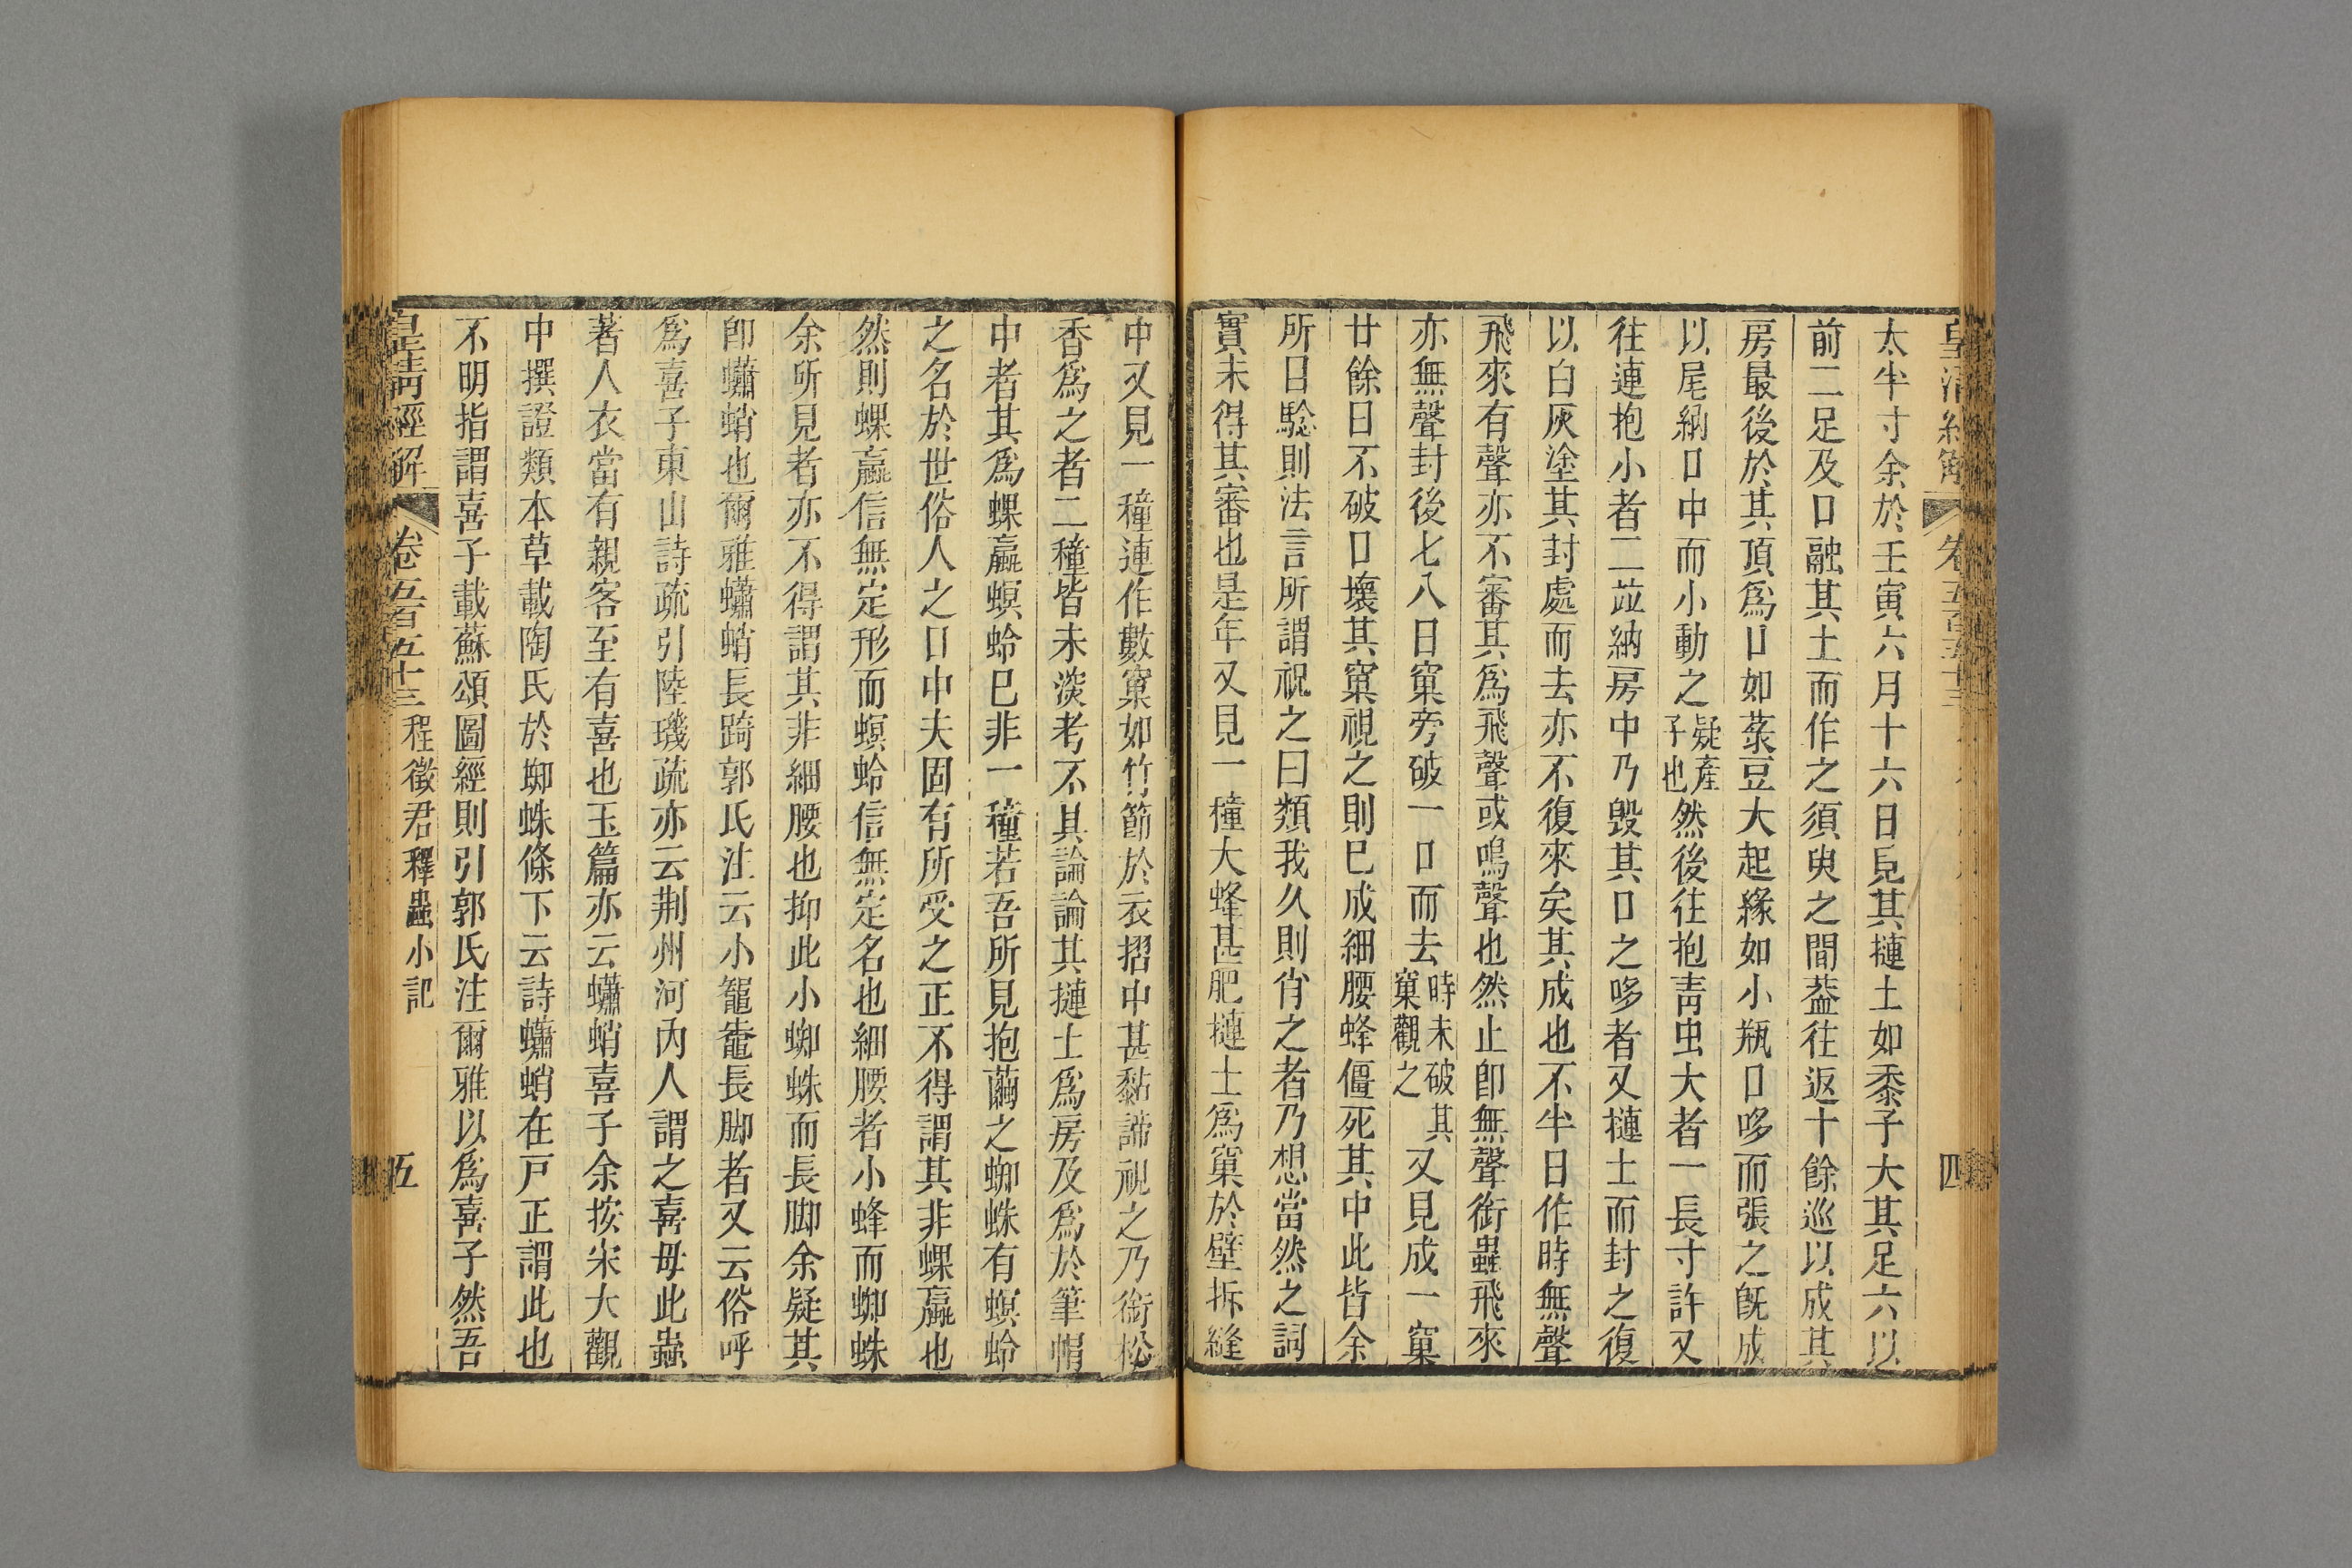 皇清經解 卷五百五十三 四
太半寸余於壬寅六月十六日見其摙土如黍子大其足六以
前二足及口融其土而作之須臾之間葢往返十餘巡以成其
房最後於其頂爲口如菉豆大起緣如小瓶口哆而張之旣成
以尾納口中而小動之疑產子也然後往抱靑虫大者一長寸許又
往連抱小者二竝納房中乃毀其口之哆者又摙土而封之復
以白灰塗其封處而去亦不復來矣其成也不半日作時無聲
飛來有聲亦不審其爲飛聲或鳴聲也然止卽無聲銜蟲飛來
亦無聲封後七八日窠旁破一口而去時未破其窠觀之又見成一窠
廿餘日不破口壞其窠視之則已成細腰蜂僵死其中此皆余
所目騐則法言所謂祝之曰類我久則肖之者乃想當然之詞
實未得其審也是年又見一種大蜂甚肥摙土爲窠於壁拆縫
中又見一種連作數窠如竹節於衣摺中甚黏諦視之乃銜松
香爲之者二種皆未淡考不具論論其摙土爲房及爲於筆帽
中者其爲蜾蠃螟蛉已非一種若吾所見抱繭之蜘蛛有螟蛉
之名於世俗人之口中夫固有所受之正不得謂其非蜾蠃也
然則蜾蠃信無定形而螟蛉信無定名也細腰者小蜂而蜘蛛
余所見者亦不得謂其非細腰也抑此小蜘蛛而長脚余疑其
卽蠨蛸也爾雅蠨蛸長踦郭氏注云小鼅鼄長脚者又云俗呼
爲喜子東山詩疏引陸璣疏亦云荆州河內人謂之喜母此蟲
著人衣當有親客至有喜也玉篇亦云蠨蛸喜子余按宋大觀
中撰證類本草載陶氏於蜘蛛條下云詩蠨蛸在戸正謂此也
不明指謂喜子載蘇頌圖經則引郭氏注爾雅以爲喜子然吾
皇淸經解 卷五百五十三 程徵君釋蟲小記 五